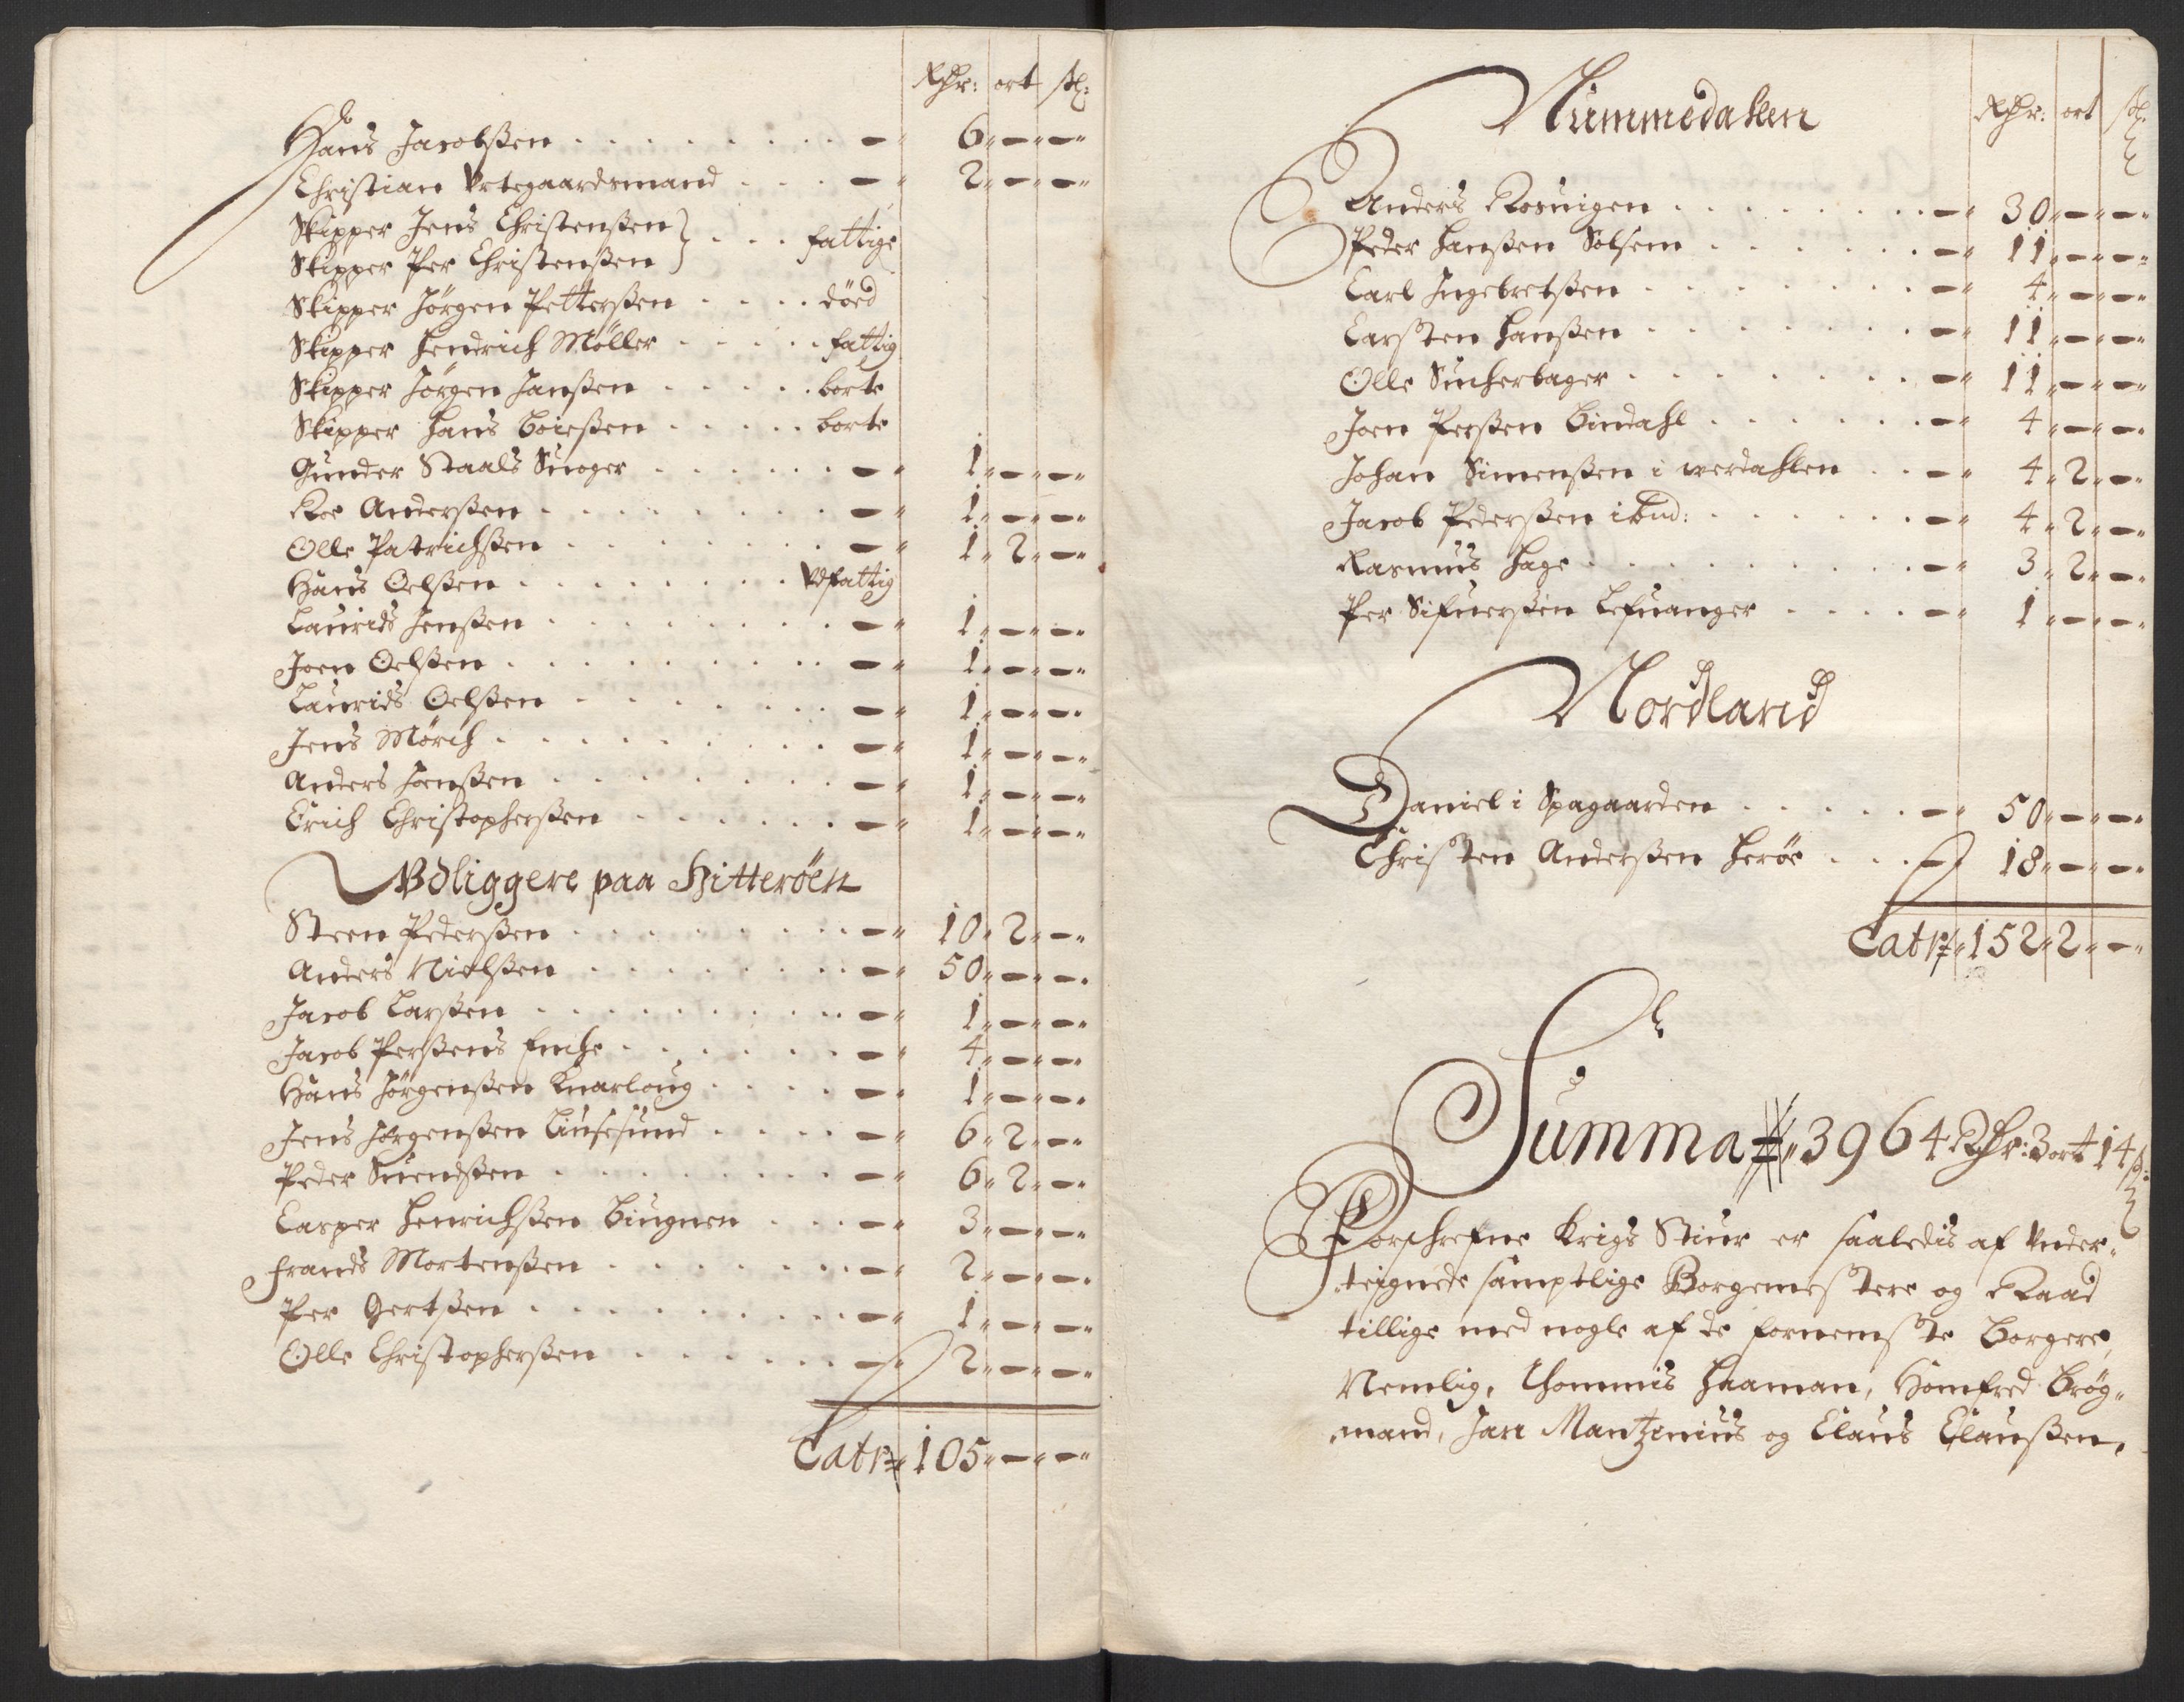 Rdr: ort sk:
Hans Jacobßen . . . . . . . . — 6 — —
Christian Vrtegaardsmand . . . — 2 — —
Skipper Jens Christenßen } . . . fattige
Skipper Per Christenßen
Skipper Jörgen Petterßen . . . . döed
Skipper Hendrich Möller . . . . . fattig
Skipper Jörgen Janßen . . . . . borte
Skipper Hans Boießen . . . . . borte
Gunder Staals Suoger . . . . . — 1 — —
Roe Anderßen . . . . . . . . — 1 — —
Olle Patrichßen . . . . . . . — 1 2 —
Hans Oelßen . . . . . . . . Vdfattig
Laurids Jenßen . . . . . . . . — 1 — —
Joen Oelßen . . . . . . . . . — 1 — —
Laurids Oelßen . . . . . . . — 1 — —
Jens Mörch . . . . . . . . . — 1 — —
Anders Joenßen . . . . . . . . — 1 — —
Erich Christopherßen . . . . . . — 1 — —
Vdliggere paa Hitteröen
Steen Pederßen . . . . . . . . — 10 2 —
Anders Nielßen . . . . . . . . — 50 — —
Jacob Larßen . . . . . . . . . — 1 — —
Jacob Perßens Enche . . . . . . — 4 — —
Hans Jörgenßen Knarloug . . . . — 1 — —
Jens Jörgenßen Liusesund . . . . — 6 2 —
Peder Suendßen . . . . . . . . — 6 2 —
Casper Henrichßen Biugnen . . . — 3 — —
Frands Mortenßen . . . . . . . — 2 — —
Per Gertßen . . . . . . . . . — 1 — —
Olle Christopherßen . . . . . . — 2 — —
Latr 105 — —
Nummedalen
Rdr: ort sk:
Anders Rosuigen . . . . . . . . — 30 — —
Peder Hanßen Solsem . . . . . . — 11 — —
Carl Ingebretßen . . . . . . . — 4 — —
Carsten Hanßen . . . . . . . — 11 — —
Olle Sucherbager . . . . . . . — 11 — —
Joen Perßen Bindahl . . . . . . — 4 — —
Johan Simenßen i werdahlen . . — 4 2 —
Jacob Pederßen ibid: . . . . . . — 4 2 —
Rasmus Hage . . . . . . . . . — 3 2 —
Per Sifuerßen Lefuanger . . . . — 1 — —
Nordland
Daniel i Spagaarden . . . . . — 50 — —
Christen Anderßen Heröe . . . — 18 — —
Latr 152 2 —
Summa 3964 Rdr: 3 ort 14 ß:
Forschrefne Krigs Stiur er saaledis af Vnder-
teignede samptlige Borgemestere og Raad
tillige med nogle af de fornemste Borgere,
Nemlig, Thommis Haaman, Homfred Brög-
mand, Jan Mantzinius og Claus Claußen,